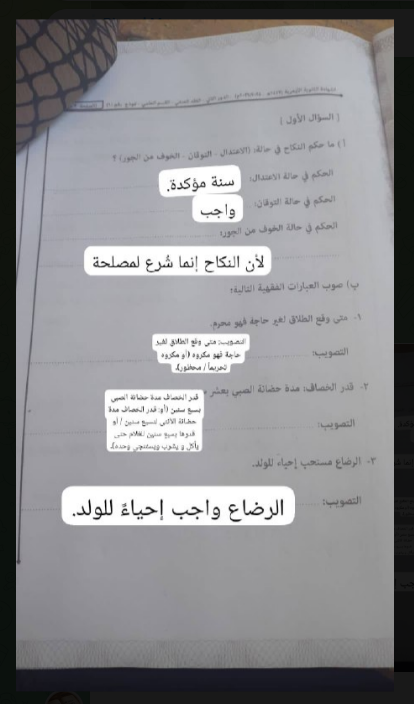 [ السؤال الأول ]
أ) ما حكم النكاح في حالة: (الاعتدال - التوقان - الخوف من الجور) ؟
الحكم في حالة الاعتدال:
سنة مؤكدة.
الحكم في حالة التوقان:
واجب
الحكم في حالة الخوف من الجور:
لأن النكاح إنما شُرع لمصلحة
ب) صوب العبارات الفقهية التالية:
١- متي وقع الطلاق لغير حاجة فهو محرم.
التصويب:
التصويب: متي وقع الطلاق لغير
حاجة فهو مكروه (أو مكروه
تحريماً / محظور).
٢- قدر الخصاف: مدة حضانة الصبي بعشر
التصويب:
قدر الخصاف مدة حضانة الصبي
بسبع سنين (أو: قدر الخصاف مدة
حضانة الأنثى لتسع سنين / أو
قدرها بسبع سنين للغلام حتى
يأكل و يشرب ويستنجي وحده).
٣- الرضاع مستحب إحياء للولد.
التصويب:
الرضاع واجب إحياءً للولد.